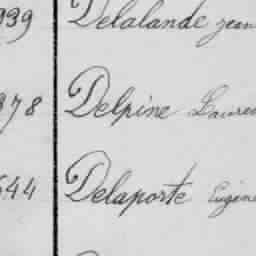 939 Delalande Jean
878 Delpine Lauren
644 Delaporte Eugène